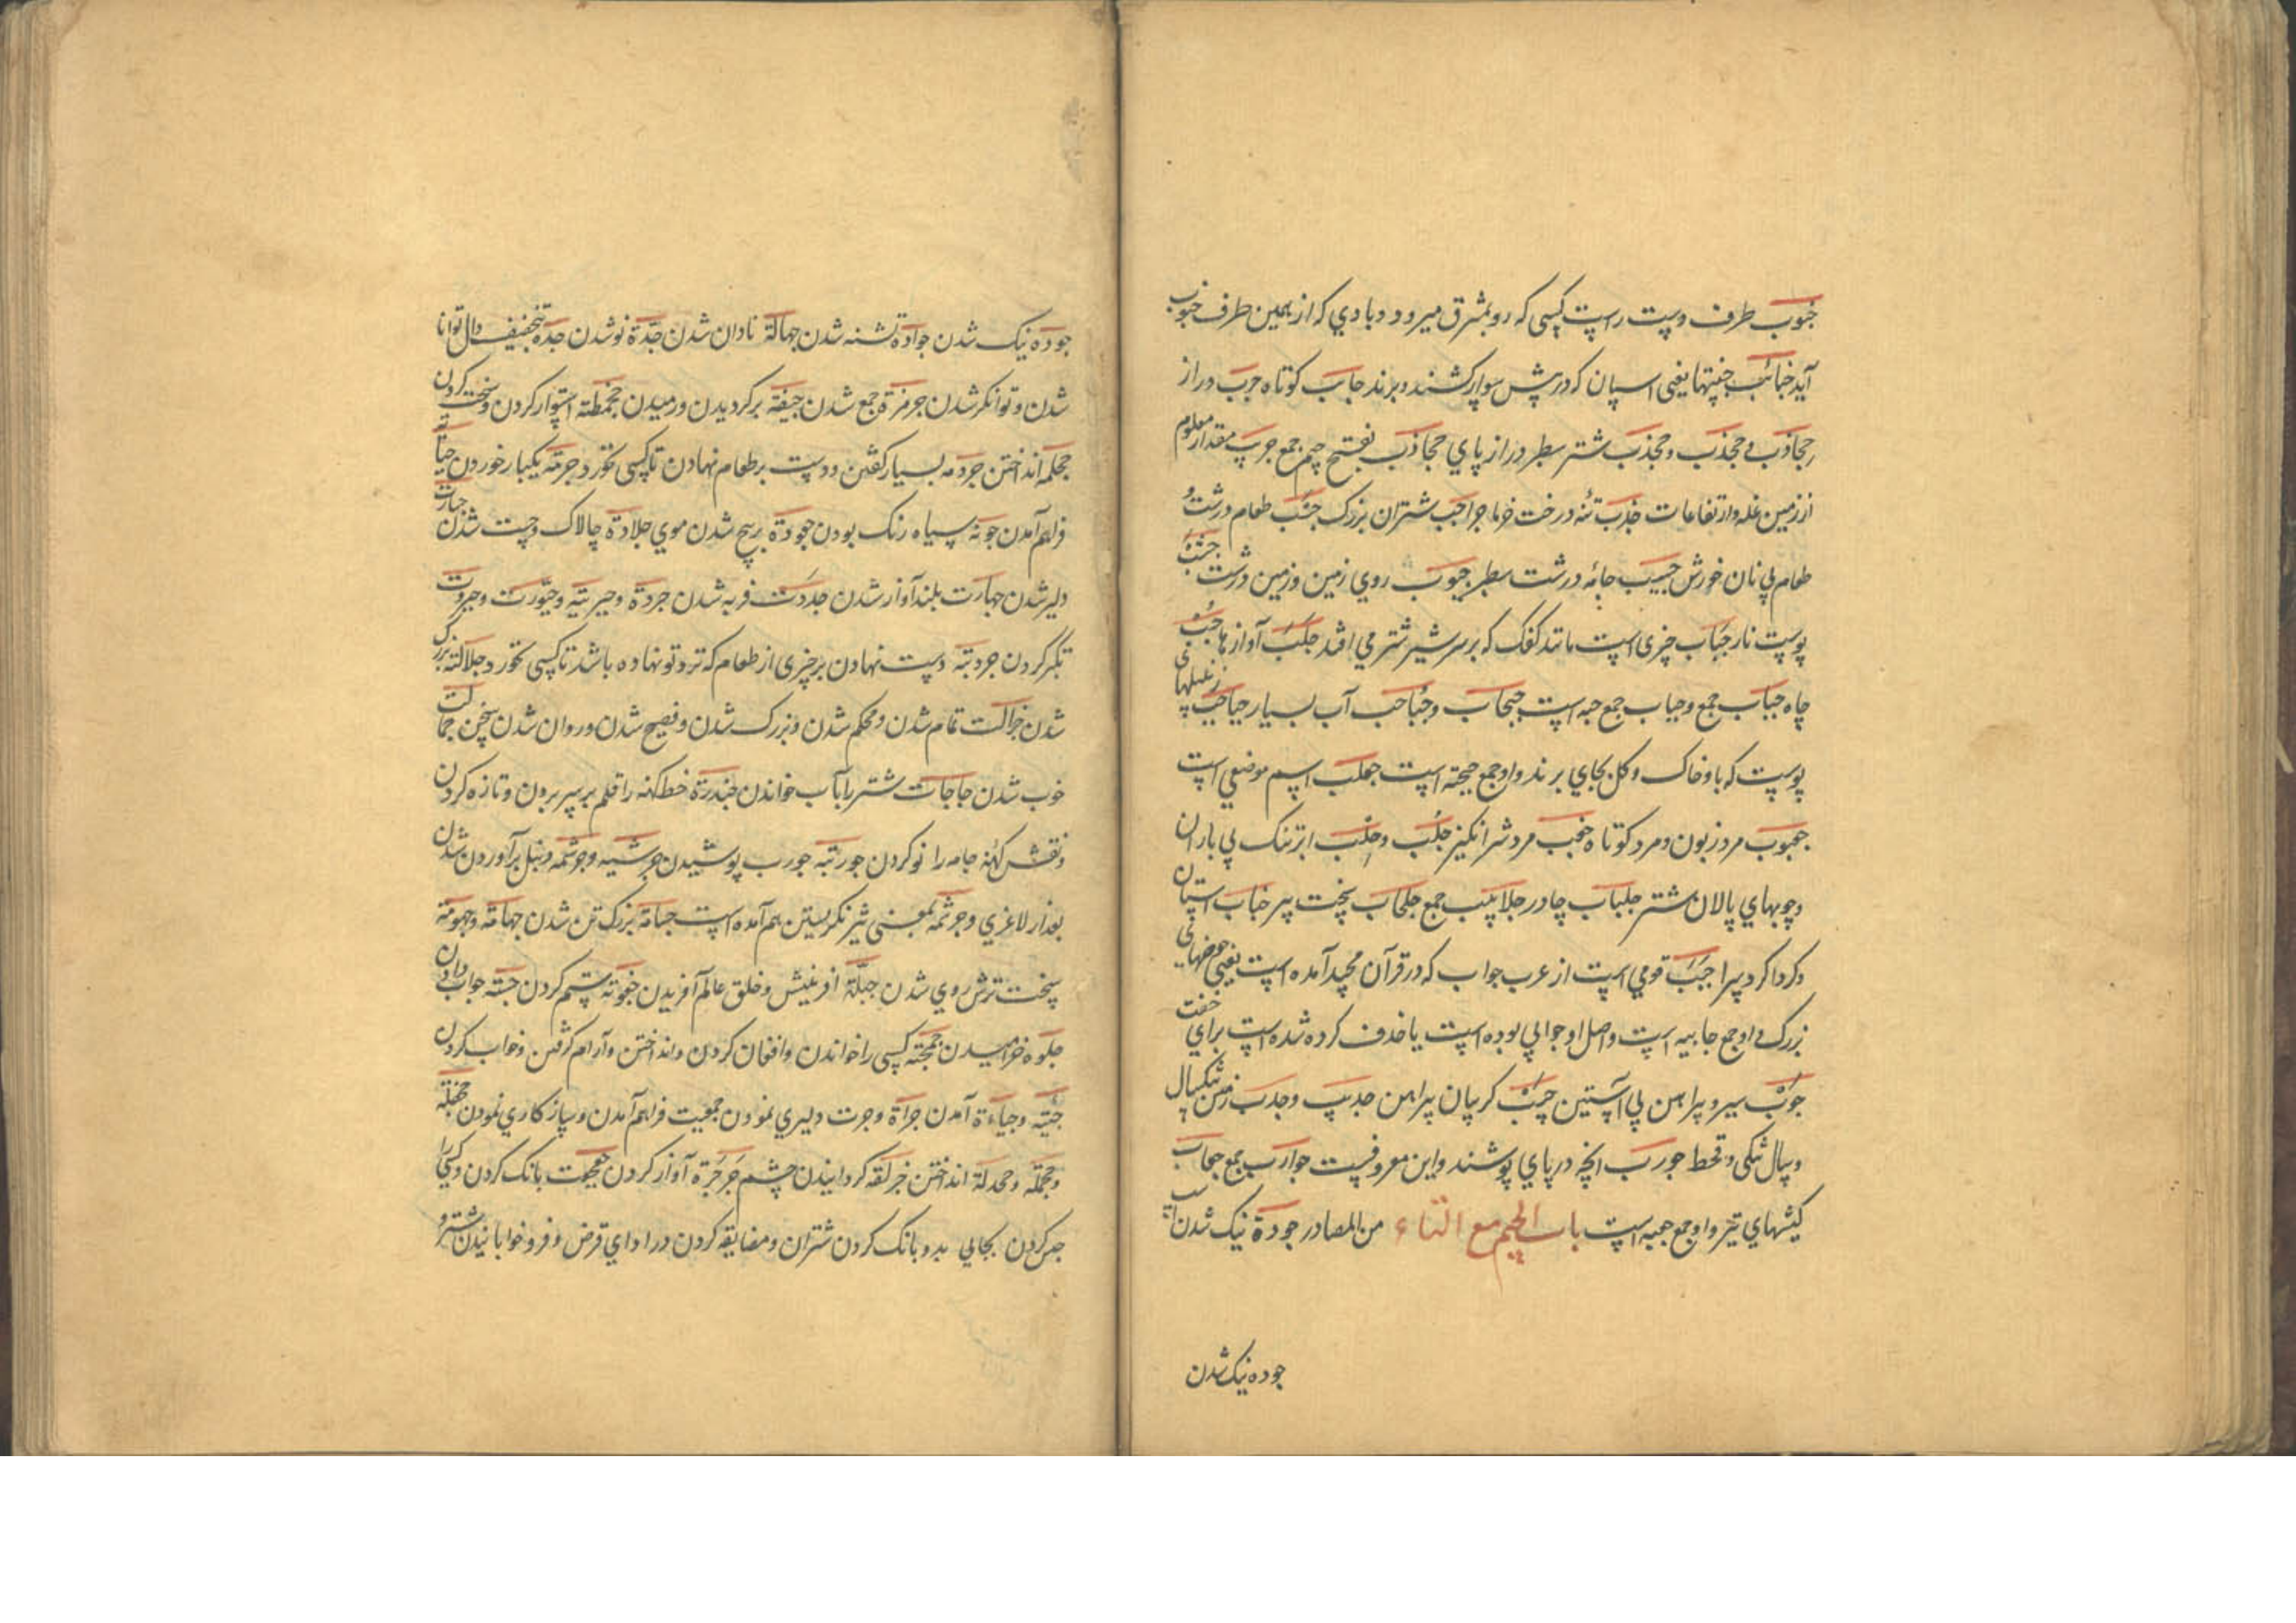 جنوب طرف دست راست کسی که رو بمشرق میرود و بادي که از همین طرف جنوب
آید جنائب جنبتها یعنی اسپان که در پیش سوار کشند و برند جانب کوتاه جرب دراز
جخاذب و جخذب و جخذب شتر سطبر دراز پاي جخاذب بفتح جیم جمع جریب مقدار معلوم
از زمین غله و ارتفاعات جذب تنه درخت خرما جراجب شتران بزرک جشب طعام درشت و
طعام بی نان خورش جشیب جامه درشت سطبر جبوب روي زمین و زمین درشت
پوست نار جباب چیزی است مانند کفک که بر سر شیر شتر می افتد جلب آوازها جب
چاه جباب جمع و جباب جمع جبه است جبجاب و جباجب آب بسیار جباجب زنبیلهای
پوست که باو خاک و کل بجاي برند و او جمع جبجبه است جحلب اسم موضعی است
جعبوب مرد زبون و مرد کوتاه جخب مرد شر انکیز جلب و جلب ابر تنک بی باران
و چوبهاي پالان شتر جلباب چادر جلابیب جمع جلحاب سخت پیر جناب آستان
و کرداکرد سرا جبب قومی است از عرب جواب که در قرآن مجید آمده است یعنی حوضهای
بزرک و او جمع جابیه است و اصل او جوابی بوده است یا حذف کرده شده است برای خفت
جوب سپر و پیراهن بی آستین جیب کریبان پیراهن جدیب و جدب زمین تنکسال
و سال تنکی و قحط جورب انچه در پاي پوشند و این معروفست جوارب جمع جعاب
کیشهاي تیر و او جمع جعبه است باب الجیم مع التاء من المصادر جودة نیک شدن
جوده نیک شدن
جوده نیک شدن جوادة تشنه شدن جهالة نادان شدن جدة نو شدن جدة بتخفیف دال توانا
شدن و توانکر شدن جرمزة جمع شدن جیفة برکردیدن و رمیدن استوار کردن و سخت کردن
جحلمه انداختن جردمه بسیار کفتن و دست بر طعام نهادن تا کسی نخورد جرمة یکبار خوردن
فراهم آمدن جونة سیاه رنک بودن جعودة پرپیچ شدن موي جلادة چالاک و چست شدن جسارت
دلیر شدن جهارت بلند آواز شدن فربه شدن جردة و جبریة و جبورت و جبروت
تکبر کردن جردبة دست نهادن بر چیزی از طعام که نزد تو نهاده باشد تا کسی نخورد جلالة بزرک
شدن جزالت تمام شدن و محکم شدن و بزرک شدن و فصیح شدن و روان شدن سخن جمالت
خوب شدن جاجات شتر را بآب خواندن جندرة خط کهنه را قلم بر سر بردن و تازه کردن
و نقش کهنه جامه را نو کردن جوربة جورب پوشیدن و دنبل برآوردن شدن
بعد از لاغري و بمعنی تیز نکریستن هم آمده است جسامة بزرک تن شدن جهامة و جهومة
سخت ترش روي شدن جبلة افرینش و خلق عالم آفریدن جفوة ستم کردن جواب دادن
جلوه خرامیدن کسی را خواندن و افغان کردن و انداختن و آرام کرفتن و خواب کردن
جیئه و جیاءة آمدن جراة و جرت دلیري نمودن جمعیت فراهم آمدن و سازکاري نمودن
و جحدلة انداختن کردانیدن چشم جرجرة آواز کردن جعجعت بانک کردن و کسی را
حبس کردن بجای بد و بانک کردن شتران و مضایقه کردن در اداي قرض و فرو خوابانیدن شتر و